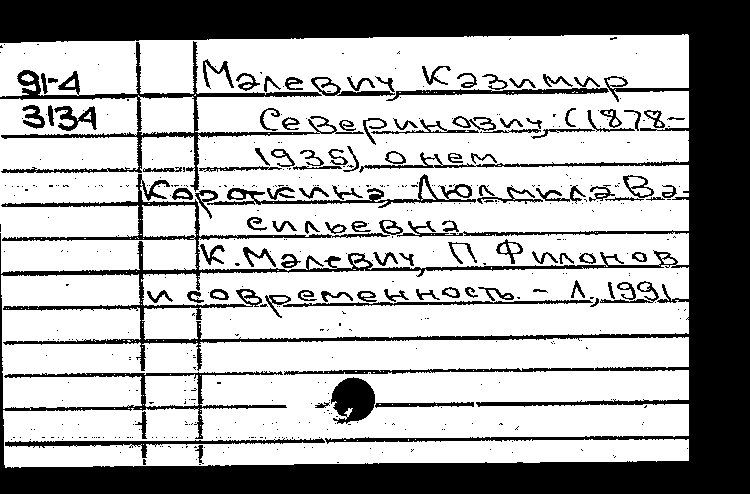 91-4 Малевич, Казимир
3134 Северинович (1878-
1935), о нем
Короткина, Людмила Ва-
сильевна
К. Малевич, П. Филонов
и современность. - Л, 1991